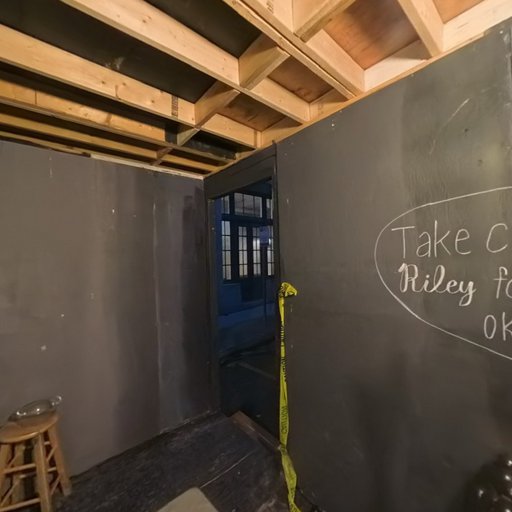 Take C
Riley fo
ok